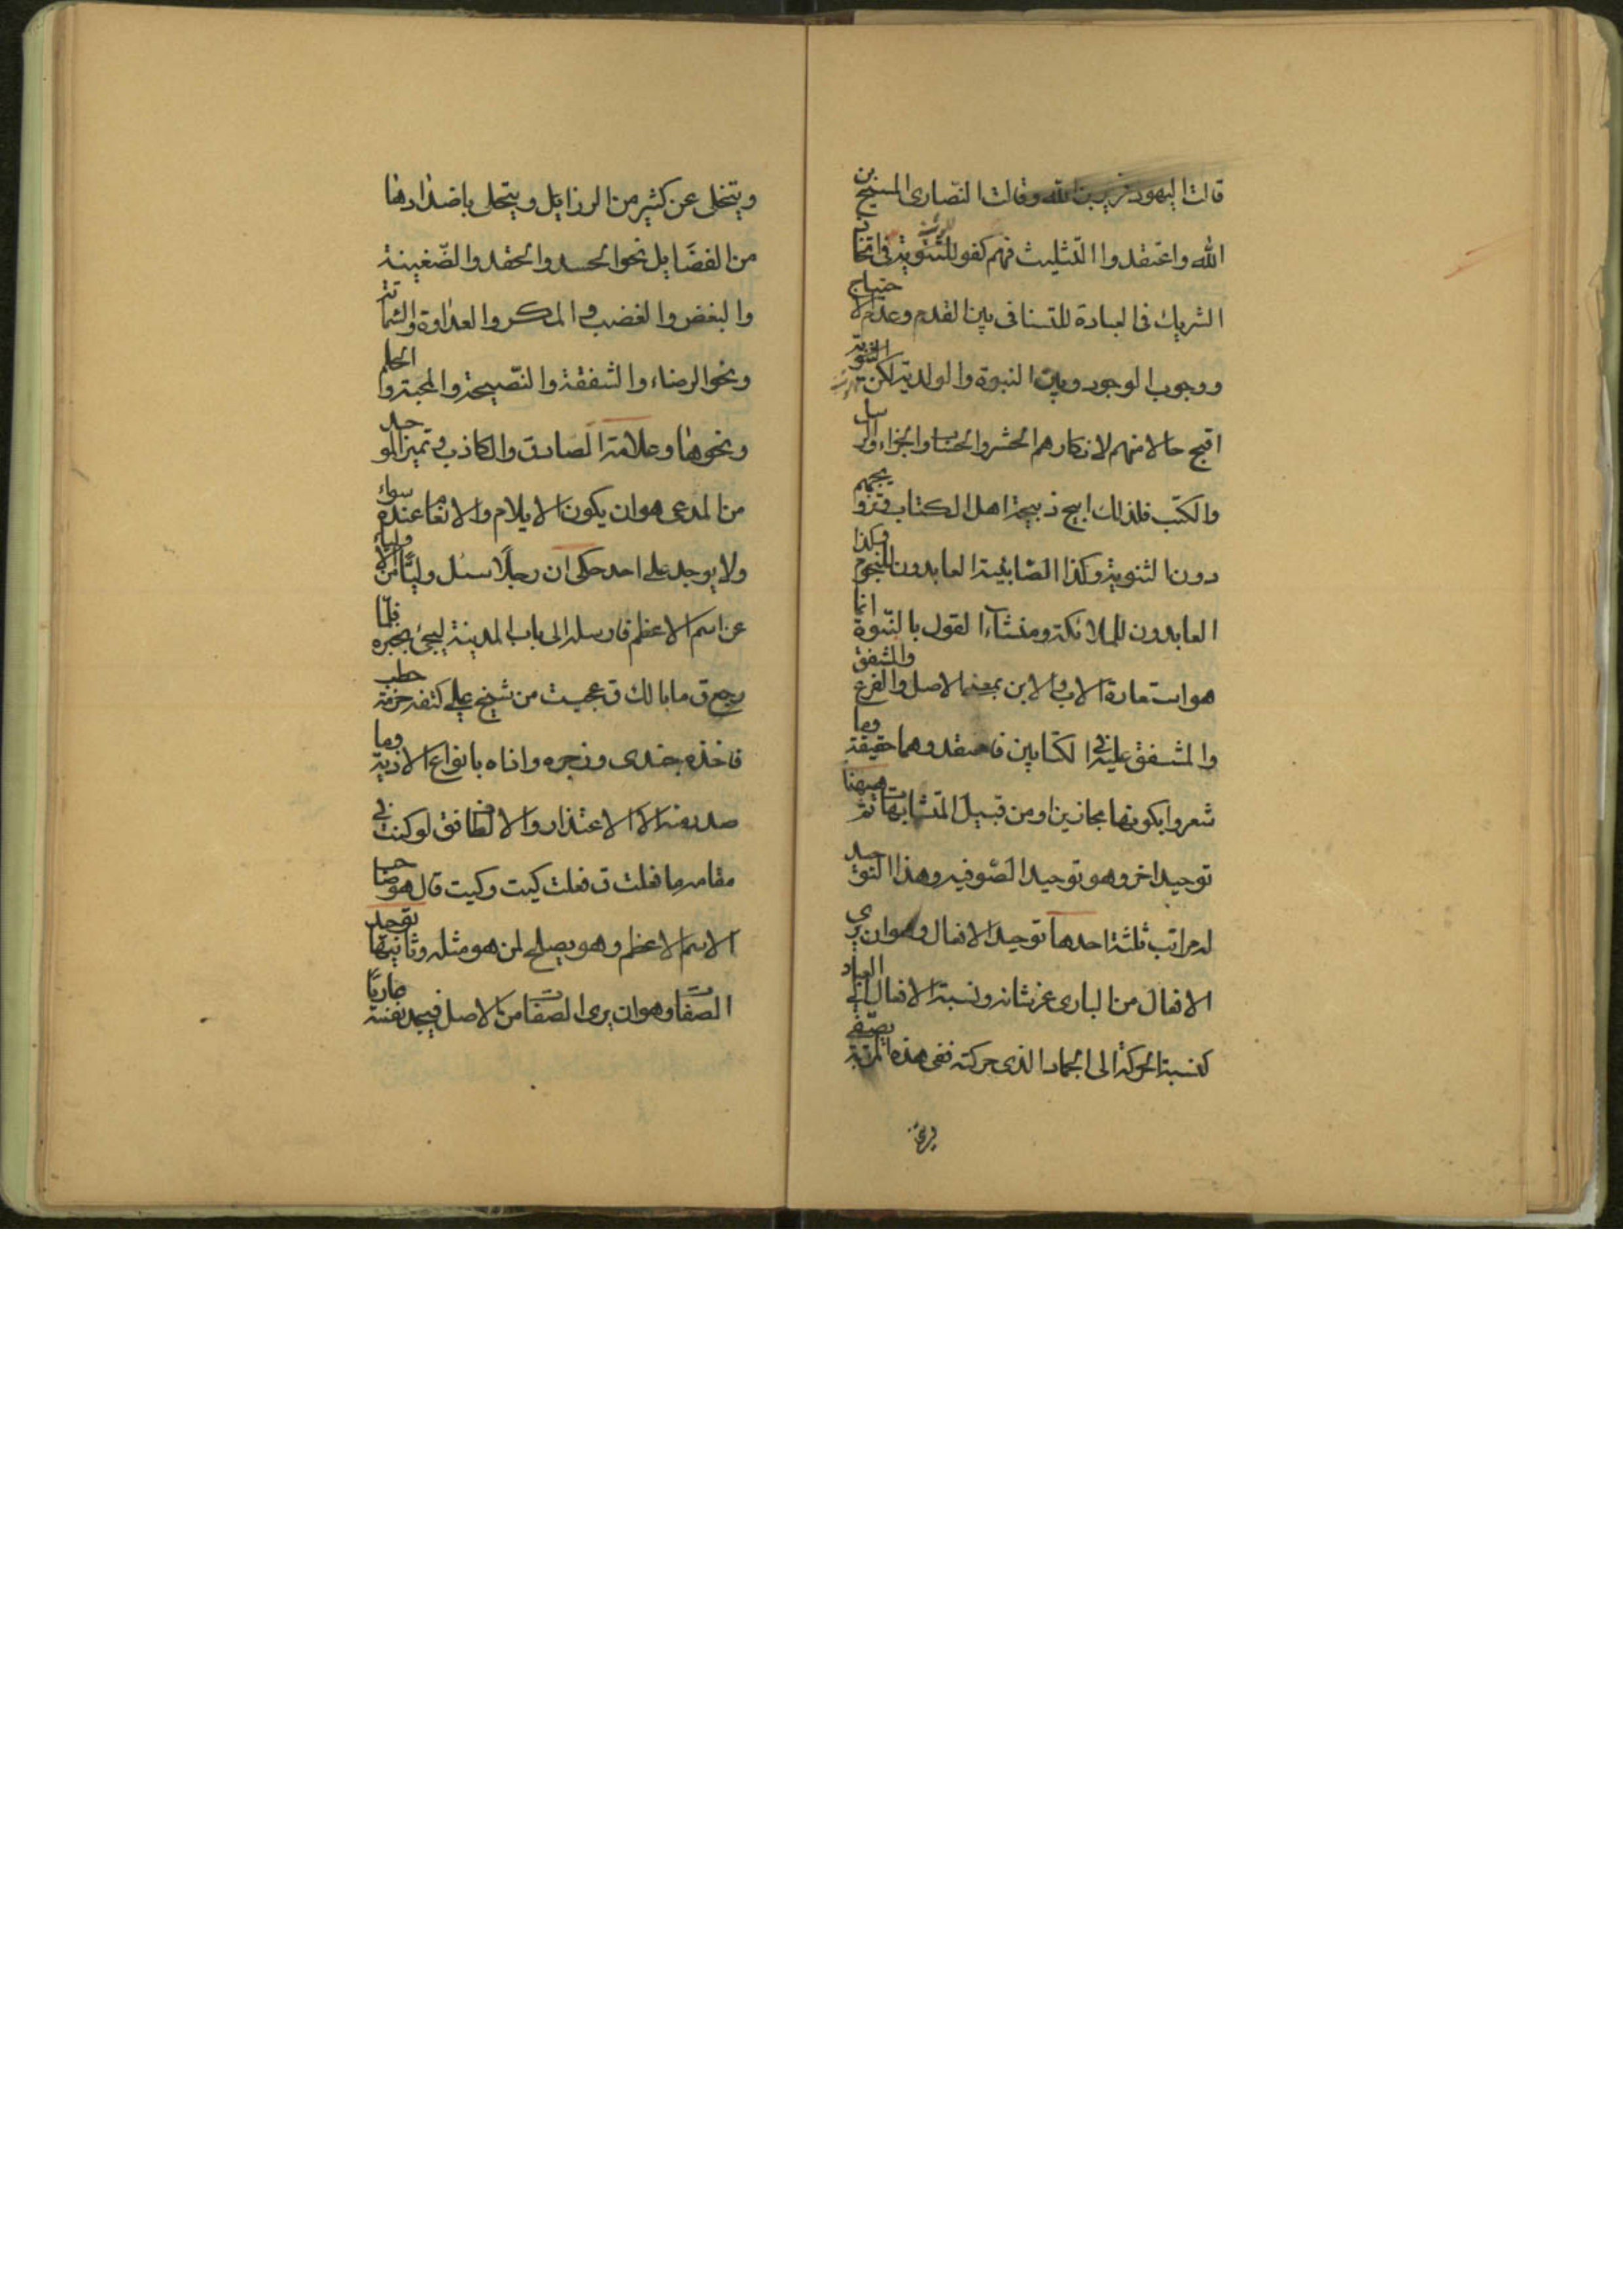 قالت اليهود عزير بن الله وقالت النصارى المسيح بن
الله واعتقدوا التثليث فهم كفو للثنوية فى اتخاذ
الشريك فى العبادة للتنافى بين القدم وعدم الاحتياج
ووجوب الوجود وبين النبوة والولدية لكن الثنوية
اقبح حالا منهم لانكارهم الحشر والحساب والجزاء والرسل
والكتب فلذلك ابيح ذبيحة اهل الكتاب وتزويجهم
دون الثنوية وكذا الصّابئية العابدون للنجوم وكذا
العابدون للملائكة ومنشاء القول بالنبّوة انما
هو استعارة الاب والابن بمعنى الاصل والفرع والشفق
والمشفق عليه فى الكتابين فاعتقدوهما حقيقة وما
شعروا بكونها مجازين او من قبيل المتشابهات ثم هيهنا
توحيد اخر وهو توحيد الصّوفيه وهذا التوحيد
له مراتب ثلثة احدها توحيد الافعال وهو ان يرى
الافعال من البارى عز شانه ونسبة الافعال الى العباد
كنسبة الحركة الى الجماد الذى حركته ففى هذه المرتبة يصفى
ويتخلى عن كثير من الرزايل ويتحلى باضدادها
من الفضايل نحو الحسد والحقد والضّغينة
والبغض والغضب والمكر والعداوة والشماتة
ونحو الرضاء والشفقة والنّصيحة والمحبة والحلم
ونحوها وعلامة الصادق والكاذب وتميز الموحد
من المدعى هو ان يكون الايلام والانعام عنده سواء
ولا يوجد على احد حكى ان رجلًا سئل وليًّا من الاولياء
عن اسم الاعظم فارسله الى باب المدينة ليجئ بخبره فلمّا
رجع ق مابالك ق عجبت من شيخ على كتفه حزمة حطب
فاخذه جندى وزجره واذاه بانواع الاذية وما
صدر منه الا الاعتذار والالطاف فق لو كنت فى
مقامه ما فعلت ق فعلت كيت وكيت قال هو صاحب
الاسم الاعظم وهو يصلح لمن هو مثله وثانيها توحيد
الصفات وهو ان يرى الصفات من الاصل فيجد نفسه عاريًا